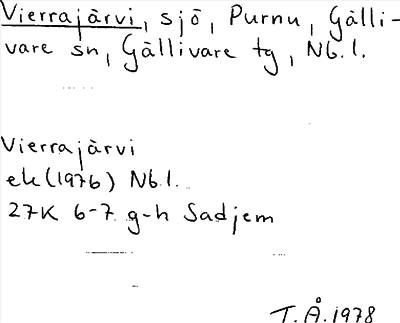 Vierrajärvi, sjö, Purnu, Gälli-
vare sn, Gällivare tg, Nb.l.
Vierrajärvi
ek(1976) Nb.l.
27K 6-7 g-h Sadjem
T.Å.1978